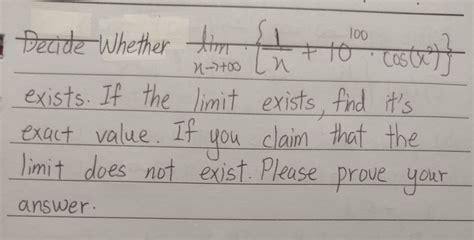 Decide Whether lim n→+∞ {1/n + 10^100 · cos(x²)}
exists. If the limit exists, find it's
exact value. If you claim that the
limit does not exist. Please prove your
answer.